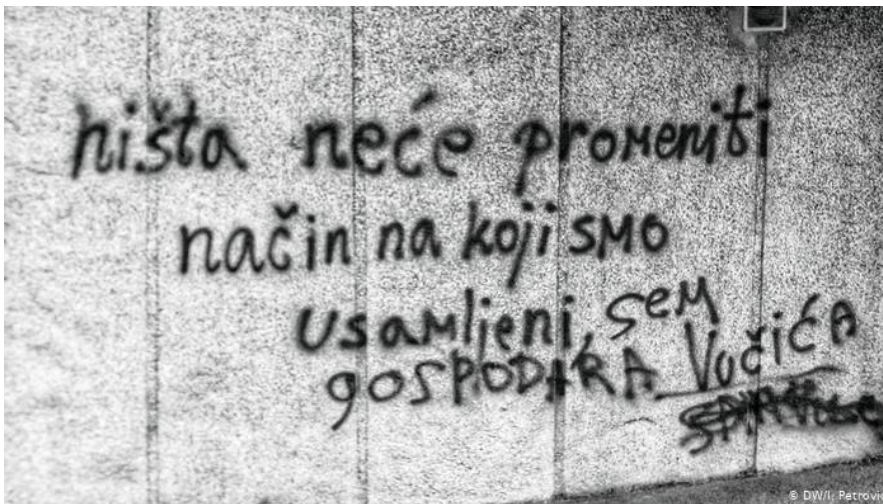 ništa neće promeniti
način na koji smo
usamljeni, sem
gOSPODARA Vučića
© DW/I. Petrović